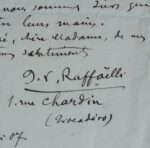 nous sommes sûrs que
en leurs mains.
chère Madame, de mes
sentiments
J. F. Raffaëlli
1. rue Chardin
(Trocadéro)
07